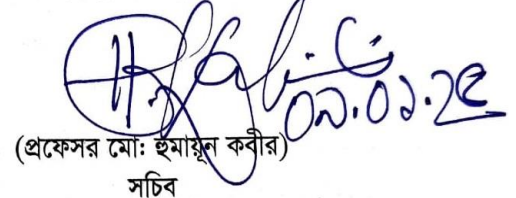 ০৯.০১.২৫
(প্রফেসর মোঃ হুমায়ূন কবীর)
সচিব